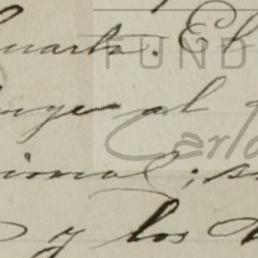 uarto. El
FUND
al
Carlo
ional; s
y los